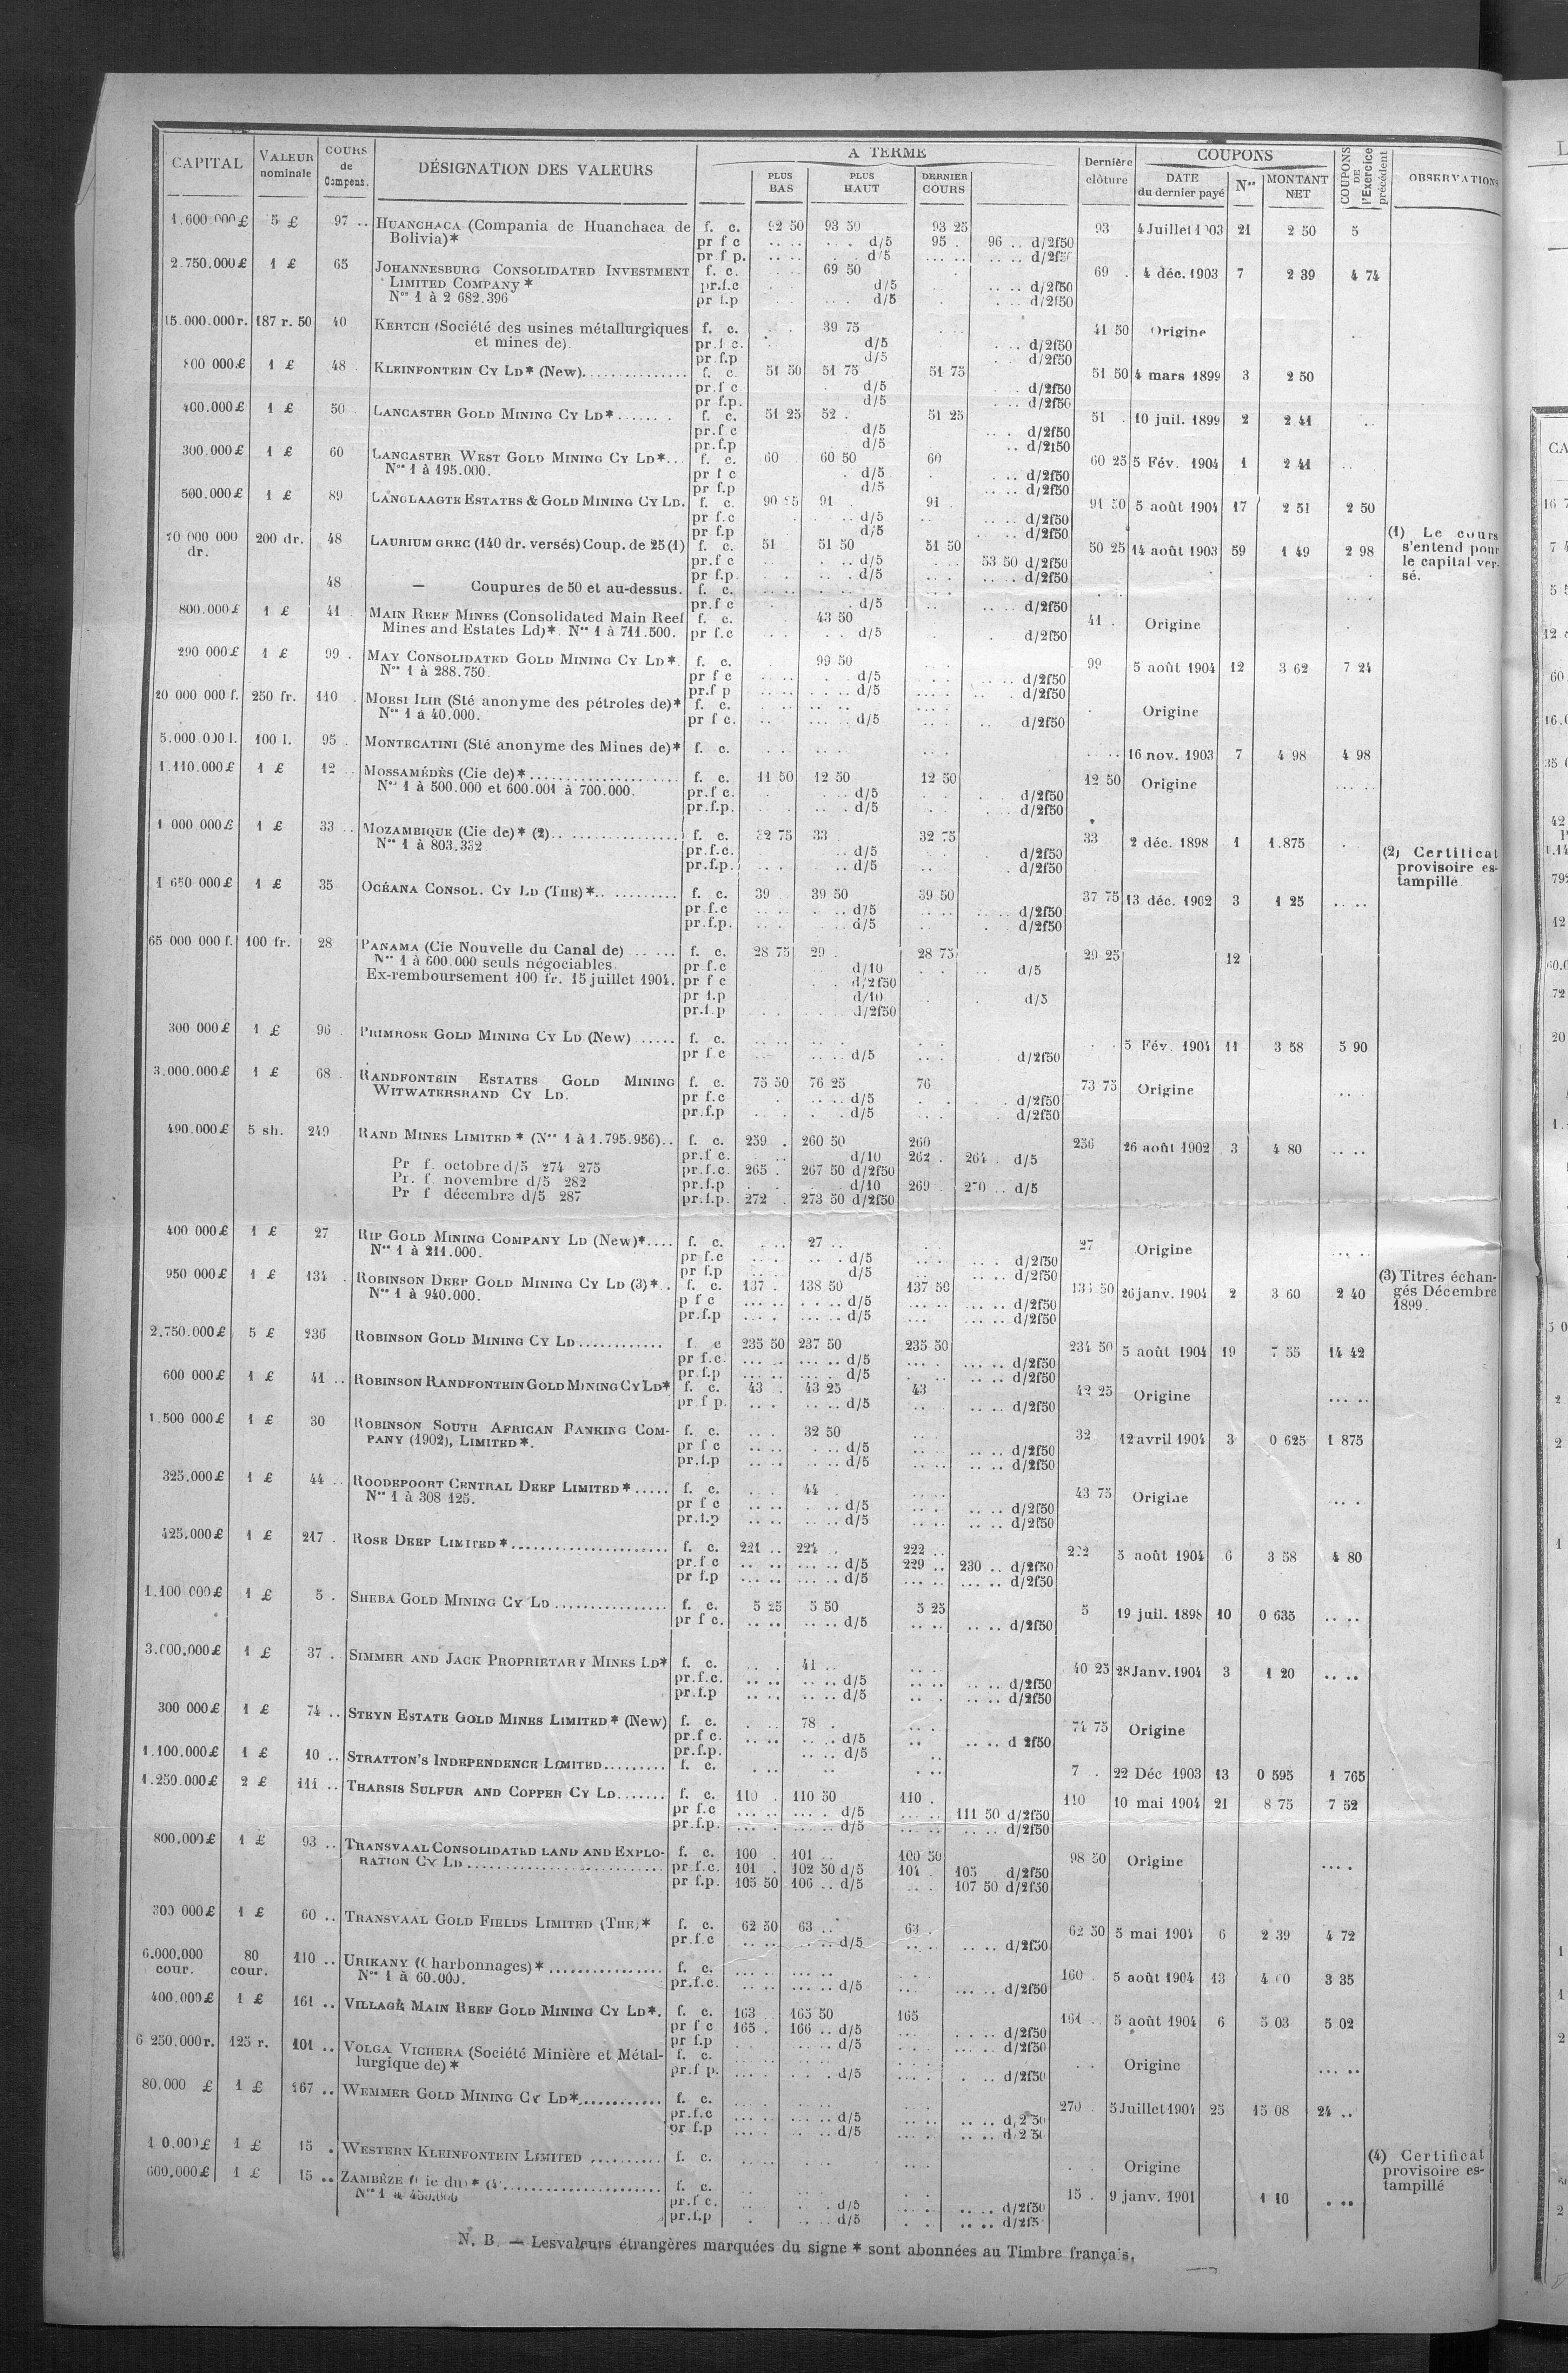 CAPITAL VALEUR nominale COURS de Compens. DÉSIGNATION DES VALEURS A TERME PLUS BAS PLUS HAUT DERNIER COURS Dernière clôture COUPONS DATE du dernier payé Nos MONTANT NET COUPONS DE l'Exercice précédent OBSERVATIONS
1.600.000 £ 5 £ 97 .. HUANCHACA (Compania de Huanchaca de f. c. 92 50 93 50 93 25 93 4 Juillet 1903 21 2 50 5
Bolivia)* pr f c d/5 95 . 96 .. d/2f50
pr f p. d/5 d/2f50
2.750.000 £ 1 £ 65 JOHANNESBURG CONSOLIDATED INVESTMENT f. c. 69 50 69 . 4 déc. 1903 7 2 39 4 74
LIMITED COMPANY * pr.f.c d/5 d/2f50
Nos 1 à 2 682.396 pr f.p d/5 d/2f50
15.000.000 r. 187 r. 50 40 KERTCH (Société des usines métallurgiques f. c. 39 75 41 50 Origine
et mines de) pr.f c. d/5 d/2f50
pr f.p d/5 d/2f50
800 000 £ 1 £ 48 KLEINFONTEIN CY LD* (New) f. c. 51 50 51 75 51 75 51 50 4 mars 1899 3 2 50
pr.f c d/5 d/2f50
pr f.p. d/5 d/2f50
400.000 £ 1 £ 50 LANCASTER GOLD MINING CY LD* f. c. 51 25 52 . 51 25 51 . 10 juil. 1899 2 2 41
pr.f c d/5 d/2f50
pr.f.p d/5 d/2f50
300.000 £ 1 £ 60 LANCASTER WEST GOLD MINING CY LD* f. c. 60 60 50 60 60 25 5 Fév. 1904 1 2 41
Nos 1 à 195.000. pr f c d/5 d/2f50
pr f.p d/5 d/2f50
500.000 £ 1 £ 89 LANGLAAGTE ESTATES & GOLD MINING CY LD. f. c. 90 25 91 91 91 50 5 août 1904 17 2 51 2 50
pr f.c d/5 d/2f50
pr f.p d/5 d/2f50
000 000 dr. 200 dr. 48 LAURIUM GREC (140 dr. versés) Coup. de 25 (1) f. c. 51 51 50 51 50 50 25 14 août 1903 59 1 49 2 98
pr.f c d/5 53 50 d/2f50
pr f.p. d/5 d/2f50
(1) Le cours
s'entend pour
le capital ver-
sé.
48 — Coupures de 50 et au-dessus. f. c.
pr.f c d/5 d/2f50
800.000 £ 1 £ 41 MAIN REEF MINES (Consolidated Main Reef f. c. 43 50 41 . Origine
Mines and Estates Ld)*. Nos 1 à 711.500. pr f.c d/5 d/2f50
290 000 £ 1 £ 99 . MAY CONSOLIDATED GOLD MINING CY LD*. f. c. 99 50 99 5 août 1904 12 3 62 7 24
Nos 1 à 288.750. pr f c d/5 d/2f50
pr.f p d/5 d/2f50
20 000 000 f. 250 fr. 110 MOESI ILIR (Sté anonyme des pétroles de)* f. c. Origine
Nos 1 à 40.000. pr f c. d/5 d/2f50
5.000.000 l. 100 l. 95 . MONTECATINI (Sté anonyme des Mines de)* f. c. 16 nov. 1903 7 4 98 4 98
1.110.000 £ 1 £ 12 .. MOSSAMÉDÈS (Cie de)* f. c. 11 50 12 50 12 50 12 50 Origine
Nos 1 à 500.000 et 600.001 à 700.000. pr.f c. d/5 d/2f50
pr.f.p. d/5 d/2f50
1 000 000 £ 1 £ 33 .. MOZAMBIQUE (Cie de)* (2) f. c. 32 75 33 32 75 33 2 déc. 1898 1 1.875
Nos 1 à 803.332 pr.f.c. d/5 d/2f50
pr.f.p. d/5 d/2f50
(2) Certificat
provisoire es-
tampillé.
1 650 000 £ 1 £ 35 OCÉANA CONSOL. CY LD (THE)* f. c. 39 39 50 39 50 37 75 13 déc. 1902 3 1 25
pr.f.c d/5 d/2f50
pr.f.p. d/5 d/2f50
65 000 000 f. 100 fr. 28 PANAMA (Cie Nouvelle du Canal de) f. c. 28 75 29 . 28 75 29 25 12
Nos 1 à 600.000 seuls négociables. pr f.c d/10 d/5
Ex-remboursement 100 fr. 15 juillet 1904. pr f c d/2f50
pr f.p d/10 d/5
pr.f.p d/2f50
300 000 £ 1 £ 96 . PRIMROSE GOLD MINING CY LD (New) f. c. 5 Fév. 1904 11 3 58 5 90
pr f c d/5 d/2f50
3.000.000 £ 1 £ 68 . RANDFONTEIN ESTATES GOLD MINING f. c. 75 50 76 25 76 73 75 Origine
WITWATERSRAND CY LD. pr f.c d/5 d/2f50
pr.f.p d/5 d/2f50
490.000 £ 5 sh. 249 RAND MINES LIMITED * (Nos 1 à 1.795.956) f. c. 259 . 260 50 260 256 26 août 1902 3 4 80
pr.f c. d/10 262 . 264 . d/5
Pr f. octobre d/5 274 275 pr.f.c. 265 . 267 50 d/2f50
Pr. f. novembre d/5 282 pr.f.p d/10 269 . 270 .. d/5
Pr f décembre d/5 287 pr.f.p. 272 . 273 50 d/2f50
400 000 £ 1 £ 27 RIP GOLD MINING COMPANY LD (New)* f. c. 27 .. 27 Origine
Nos 1 à 211.000. pr f.c d/5 d/2f50
pr f.p d/5 d/2f50
950 000 £ 1 £ 134 . ROBINSON DEEP GOLD MINING CY LD (3)* f. c. 137 . 138 50 137 50 50 26 janv. 1904 2 3 60 2 40
Nos 1 à 940.000. p f c d/5 d/2f50
pr.f.p d/5 d/2f50
(3) Titres échan-
gés Décembre
1899.
2.750.000 £ 5 £ 236 ROBINSON GOLD MINING CY LD f c 235 50 237 50 235 50 234 50 5 août 1904 19 7 55 14 42
pr f.c. d/5 d/2f50
pr f.p d/5 d/2f50
600 000 £ 1 £ 41 .. ROBINSON RANDFONTEIN GOLD MINING CY LD* f. c. 43 . 43 25 43 42 25 Origine
pr f p. d/5 d/2f50
1.500 000 £ 1 £ 30 ROBINSON SOUTH AFRICAN BANKING COM- f. c. 32 50 32 12 avril 1904 3 0 625 1 875
PANY (1902), LIMITED *. pr f c d/5 d/2f50
pr.f.p d/5 d/2f50
325.000 £ 1 £ 44 .. ROODEPOORT CENTRAL DEEP LIMITED * f. c. 44 . 43 75 Origine
Nos 1 à 308 125. pr f c d/5 d/2f50
pr.f.p d/5 d/2f50
425.000 £ 1 £ 217 . ROSE DEEP LIMITED * f. c. 221 .. 224 . 222 .. 222 5 août 1904 6 3 58 4 80
pr.f c d/5 229 .. 230 .. d/2f50
pr f.p d/5 d/2f50
1.100 000 £ 1 £ 5 . SHEBA GOLD MINING CY LD f. c. 5 25 5 50 5 25 5 19 juil. 1898 10 0 635
pr f c. d/5 d/2f50
3.000.000 £ 1 £ 37 . SIMMER AND JACK PROPRIETARY MINES LD* f. c. 41 .. 40 25 28 Janv. 1904 3 1 20
pr.f.c. d/5 d/2f50
pr.f.p d/5 d/2f50
300 000 £ 1 £ 74 .. STEYN ESTATE GOLD MINES LIMITED * (New) f. c. 78 . 74 75 Origine
pr.f c. d/5 d 2f50
pr.f.p. d/5
1.100.000 £ 1 £ 10 .. STRATTON'S INDEPENDENCE LIMITED f. c. 7 . 22 Déc 1903 13 0 595 1 765
1.250.000 £ 2 £ 111 .. THARSIS SULFUR AND COPPER CY LD f. c. 110 . 110 50 110 . 110 10 mai 1904 21 8 75 7 52
pr f.c d/5 111 50 d/2f50
pr.f.p. d/5 d/2f50
800.000 £ 1 £ 93 .. TRANSVAAL CONSOLIDATED LAND AND EXPLO- f. c. 100 . 101 .. 100 50 98 50 Origine
RATION CY LD pr f.c. 101 . 102 50 d/5 104 . 105 d/2f50
pr f.p. 105 50 106 .. d/5 107 50 d/2f50
300 000 £ 1 £ 60 .. TRANSVAAL GOLD FIELDS LIMITED (THE)* f. c. 62 50 63 .. 63 . 62 50 5 mai 1904 6 2 39 4 72
pr.f.c d/5 d/2f50
6.000.000 cour. 80 cour. 110 .. URIKANY (Charbonnages) * f. c. 160 . 5 août 1904 13 4 00 3 35
Nos 1 à 60.000. pr.f.c. d/5 d/2f50
400.000 £ 1 £ 161 .. VILLAGE MAIN REEF GOLD MINING CY LD*. f. c. 163 165 50 165 161 5 août 1904 6 5 03 5 02
pr f c 165 . 166 .. d/5 d/2f50
pr f.p d/5 d/2f50
6 250.000 r. 125 r. 101 .. VOLGA VICHERA (Société Minière et Métal- f. c. Origine
lurgique de) * pr.f p. d/5 d/2f50
80.000 £ 1 £ 267 .. WEMMER GOLD MINING CY LD* f. c. 270 . 5 Juillet 1904 25 15 08 24 ..
pr.f.c d/5 d/2 50
pr f.p d/5 d/2 50
1 £ 15 . WESTERN KLEINFONTEIN LIMITED f. c. Origine
600.000 £ 1 £ 15 .. ZAMBÈZE (Cie du) * (4) f. c. 15 . 9 janv. 1901 1 10
Nos 1 à 450.000 pr.f c. d/5 d/2f50
pr.f.p d/5 d/2f5
(4) Certificat
provisoire es-
tampillé
N. B. — Les valeurs étrangères marquées du signe * sont abonnées au Timbre français.